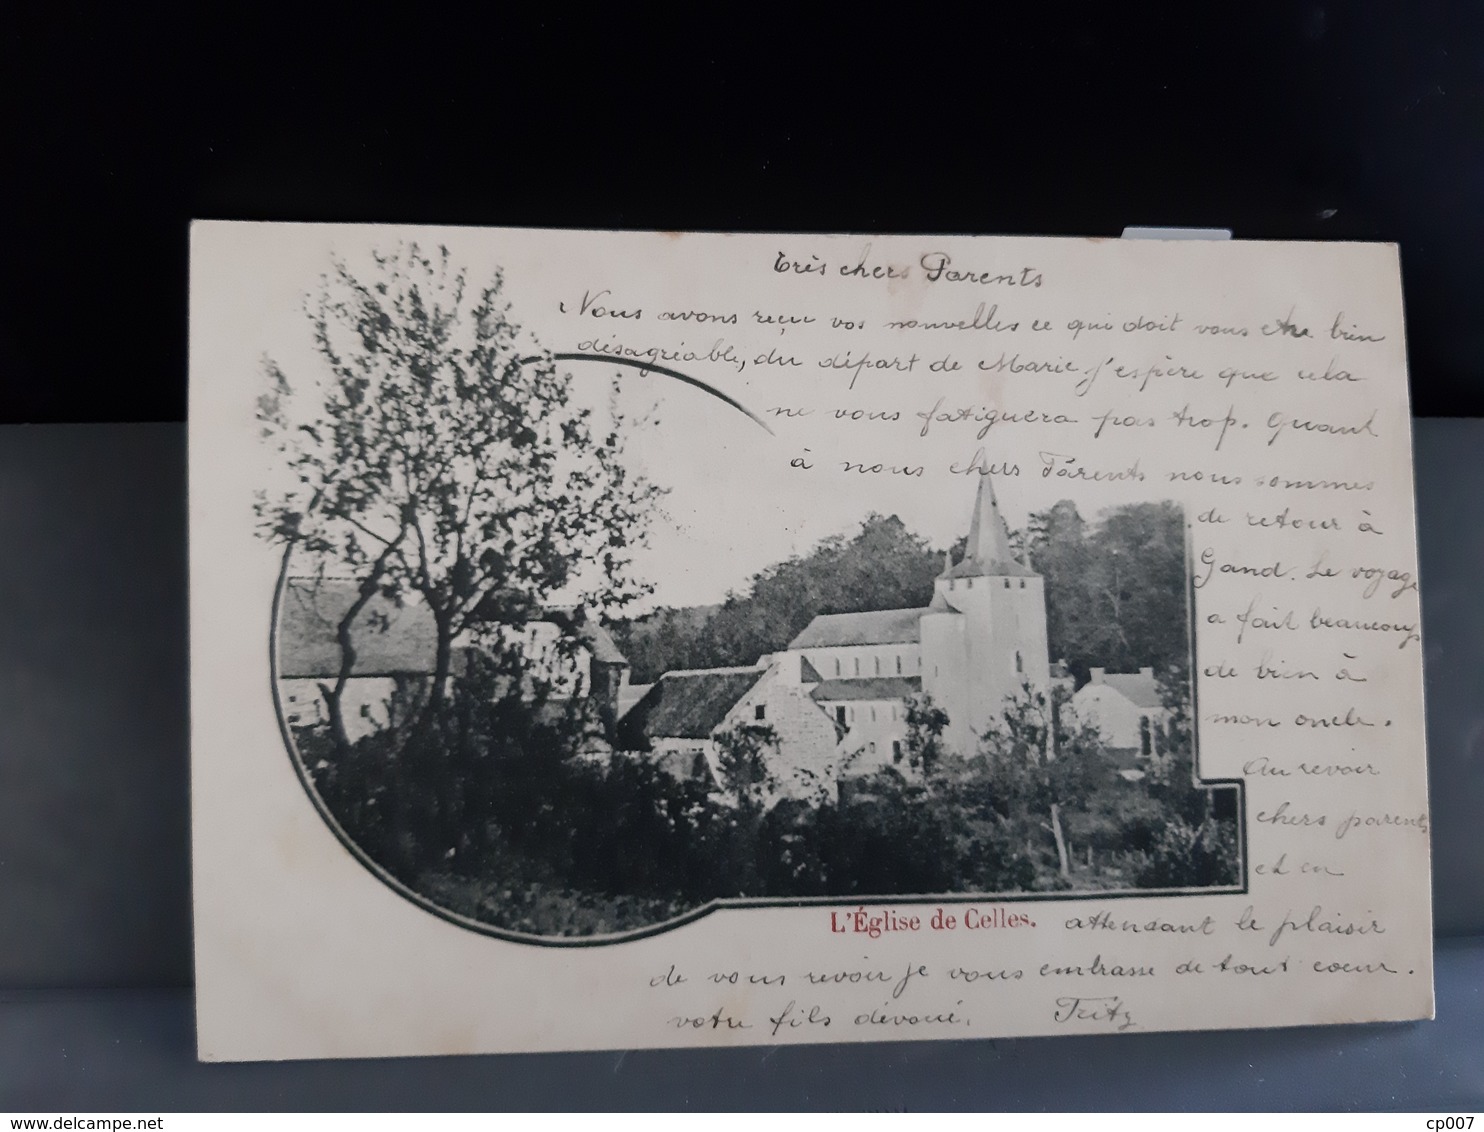 très chers Parents
Nous avons reçu vos nouvelles ce qui doit vous être bien
désagréable, du départ de Marie, j'espère que cela
ne vous fatiguera pas trop. Quant
à nous chers Parents nous sommes
de retour à
Gand. Le voyage
a fait beaucoup
de bien à
mon oncle.
Au revoir
chers parents
et en
L'Église de Celles. attendant le plaisir
de vous revoir je vous embrasse de tout coeur.
votre fils dévoué. Fritz
delcampe.net
cp007